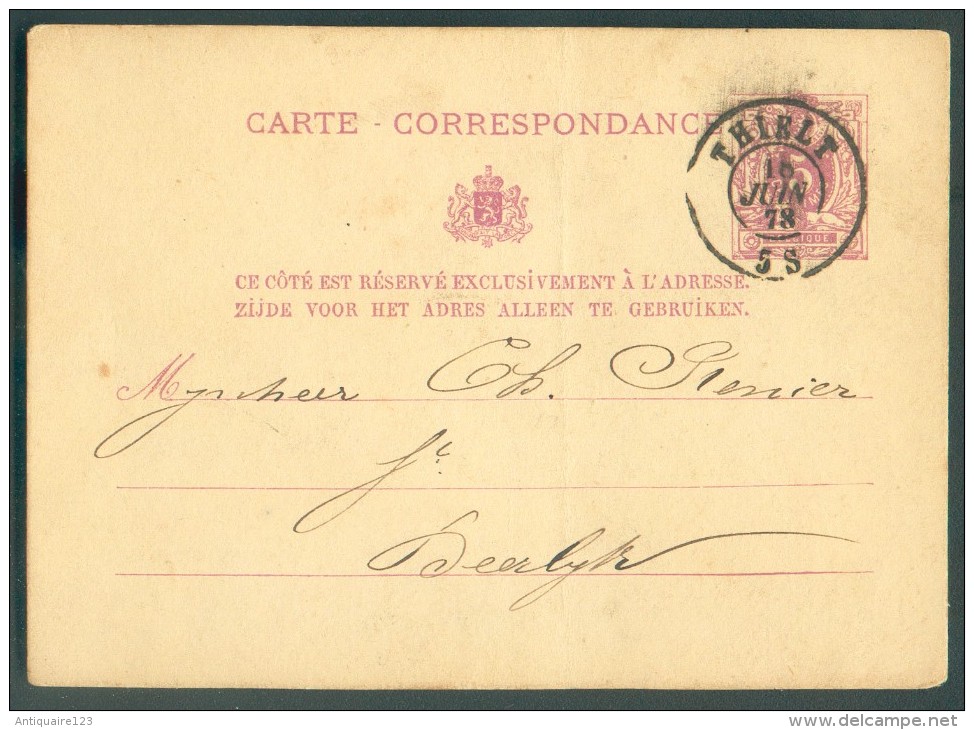 CARTE - CORRESPONDANCE
THIELT
18
JUIN
78
5 S
5
BELGIQUE
CE CÔTÉ EST RÉSERVÉ EXCLUSIVEMENT À L'ADRESSE.
ZIJDE VOOR HET ADRES ALLEEN TE GEBRUIKEN.
Mynheer Ch. Stenier
Deerlyk
Antiquaire123
www.delcampe.net